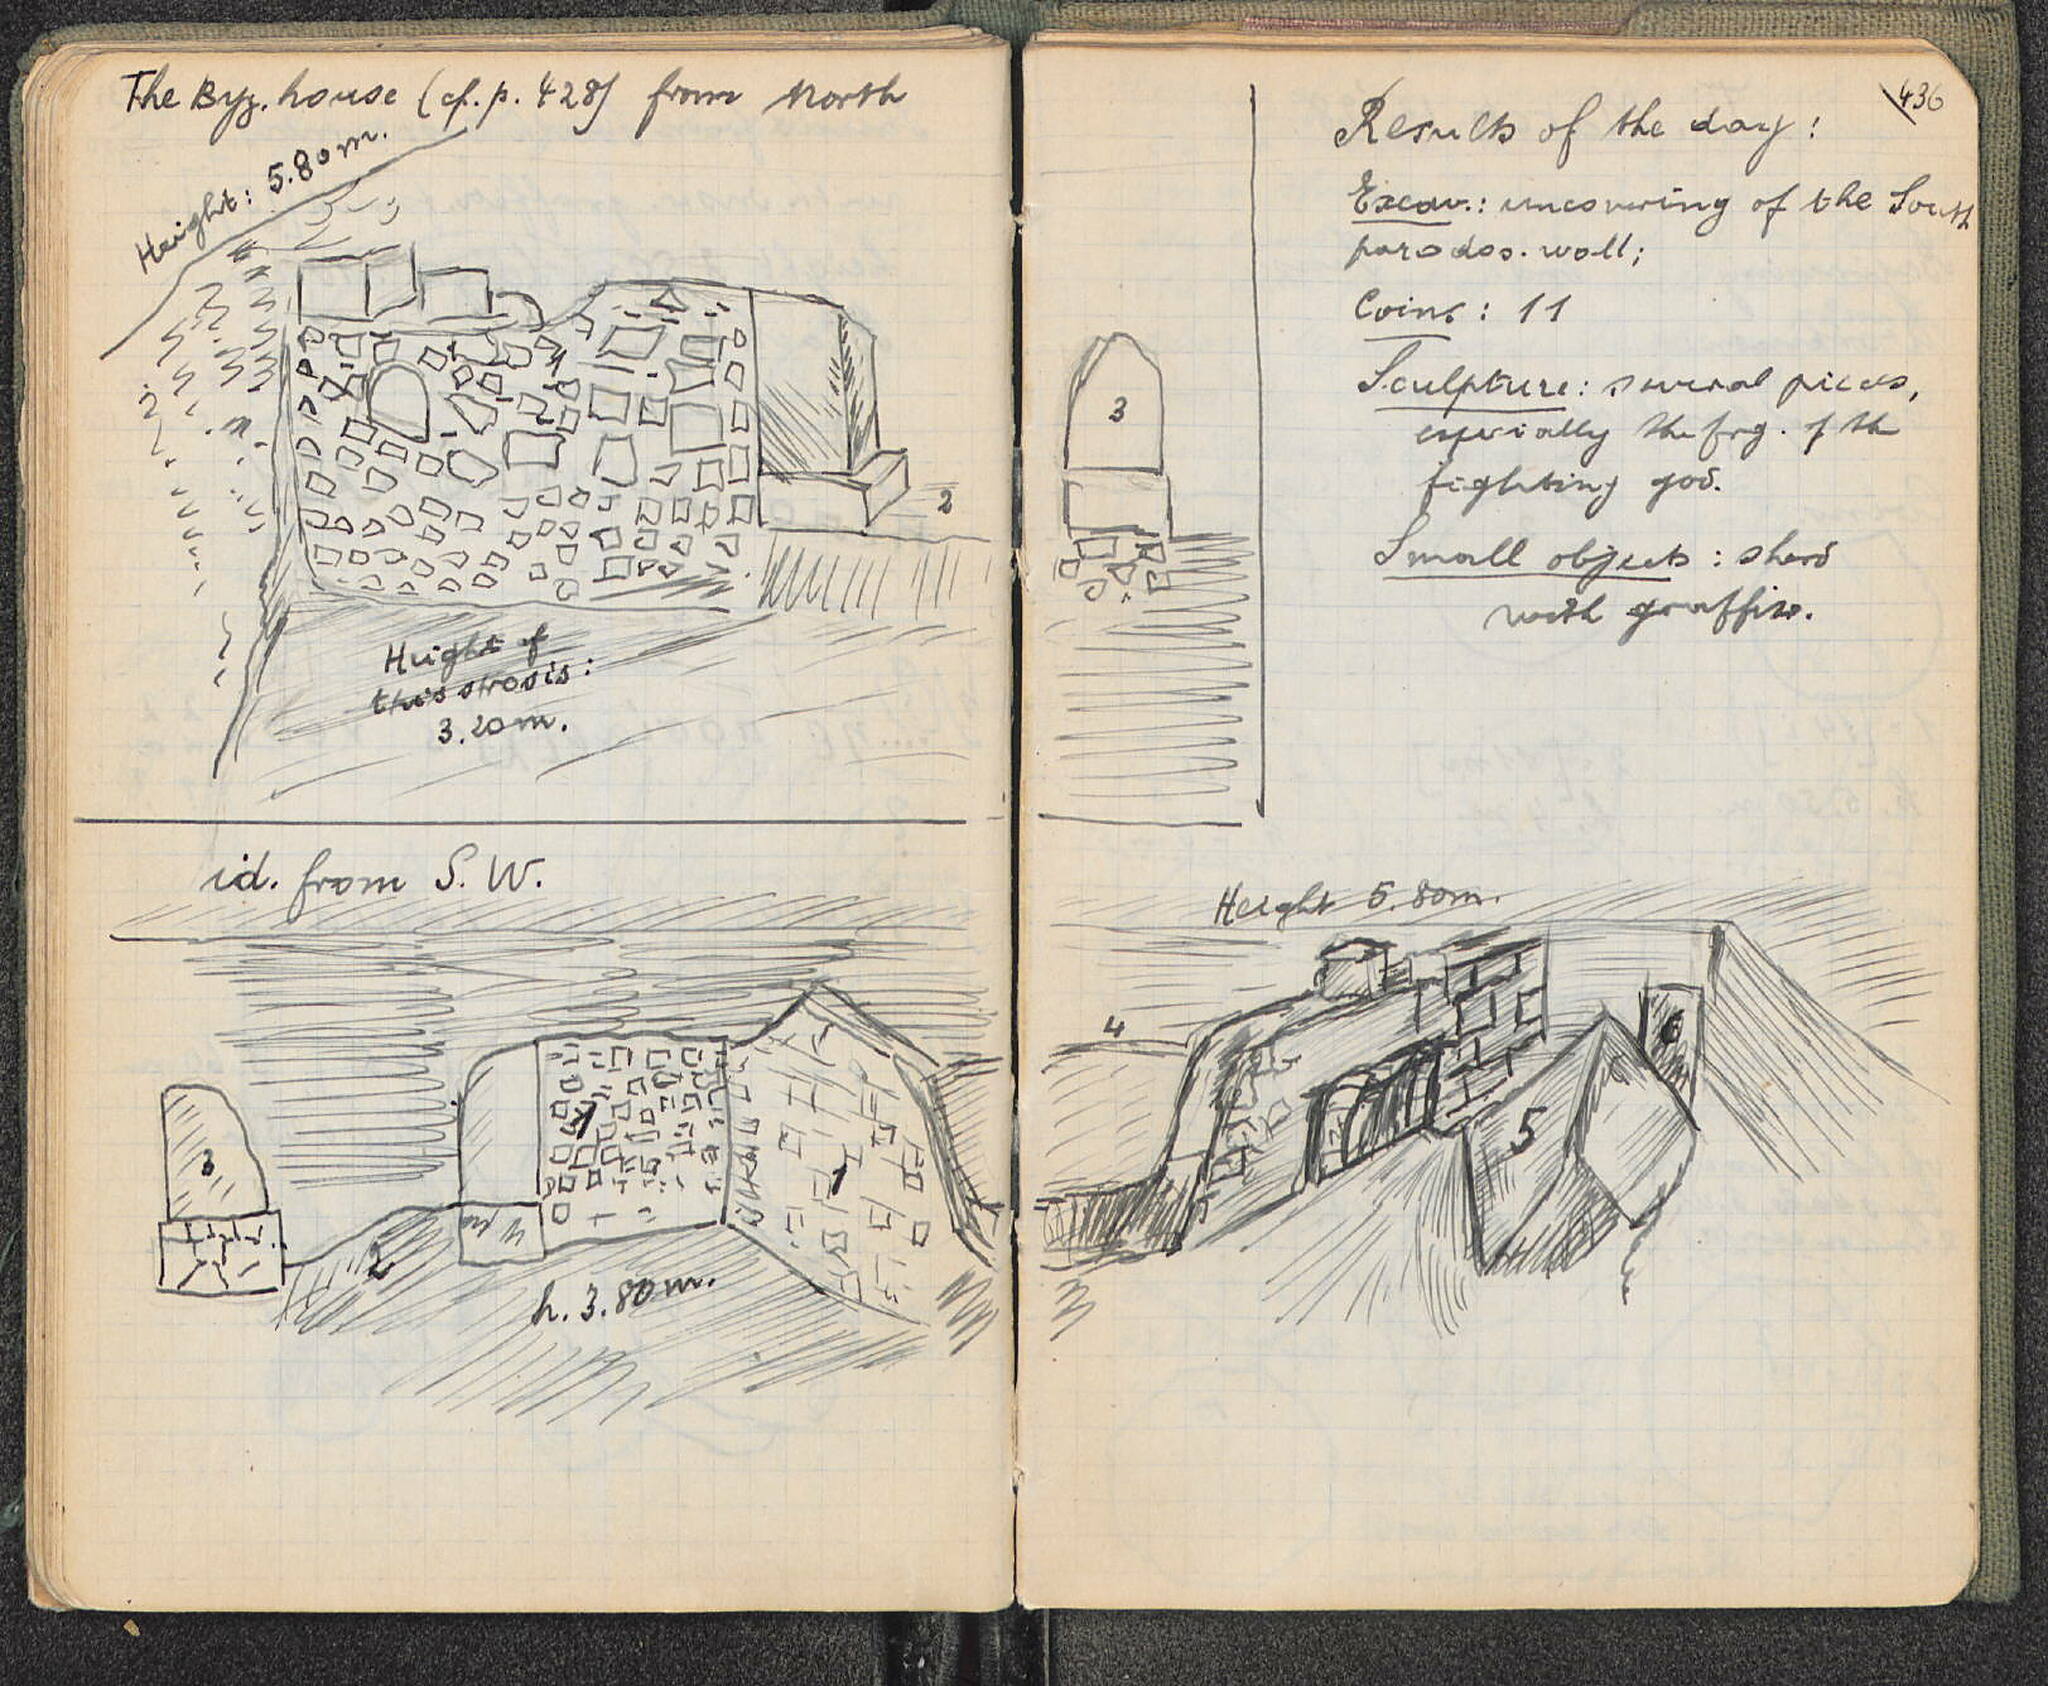 The Byz. house (cf. p. 428) from North
Height: 5.80m.
1
2
Height of
this strosis:
3.20m.
id. from S. W.
3
2
1
1
h. 3.80m.
436
Results of the day:
Excav.: uncovering of the South
parodos-wall;
Coins: 11
Sculpture: several pieces,
especially the frg. of the
fighting god.
Small objects: sherd
with graffito.
3
Height 5.80m.
4
5
6